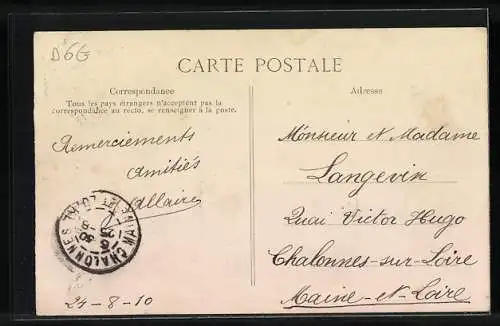 D6G
CARTE POSTALE
Correspondance
Tous les pays étrangers n'acceptent pas la
correspondance au recto, se renseigner à la poste.
Remerciements
Amitiés
Allaire
24-8-10
CHALONNES S. LOIRE
MAINE ET
Adresse
Monsieur et Madame
Langevin
Quai Victor Hugo
Chalonnes-sur-Loire
Maine-et-Loire